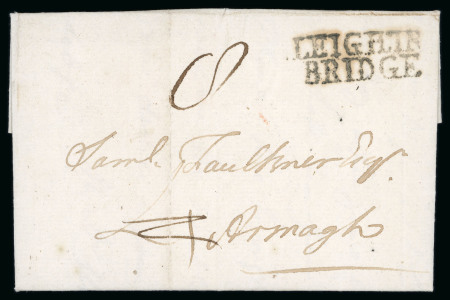 LEIGHLIN
BRIDGE.
8
Saml. Faulkner Esqr.
Armagh